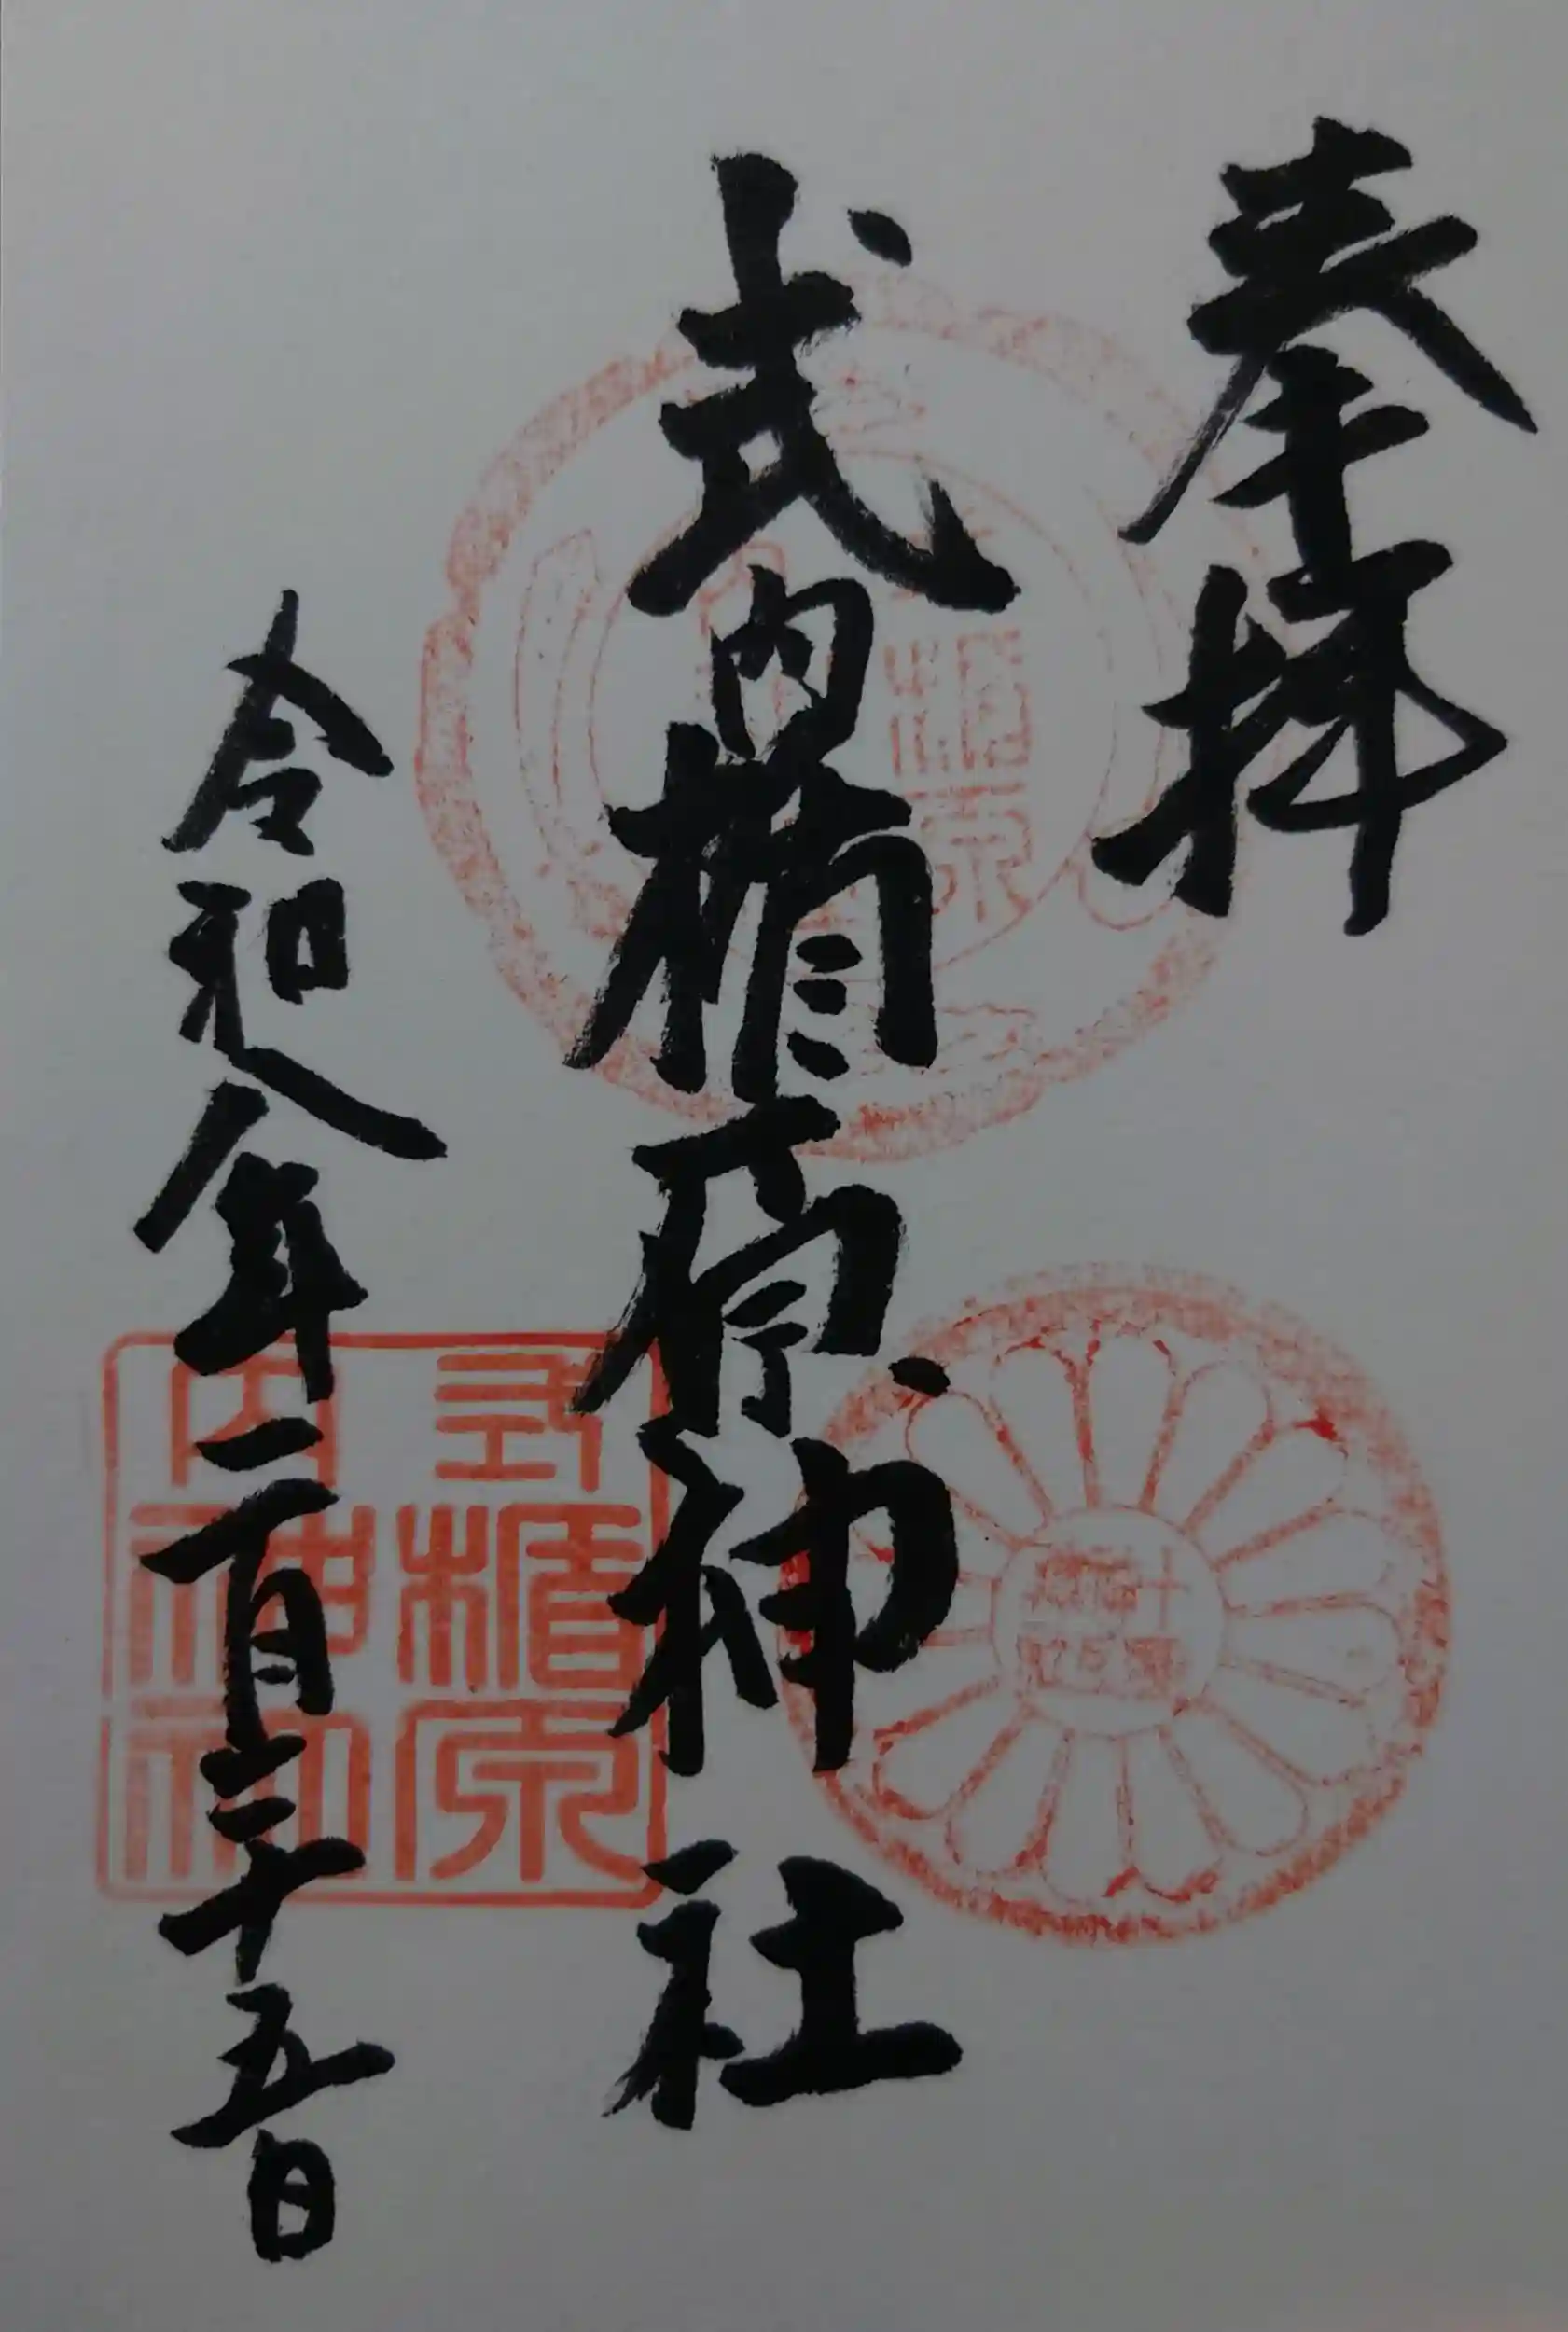 奉拝
式内楯原神社
令和八年二月二十五日
式楯原
内神社
楯原